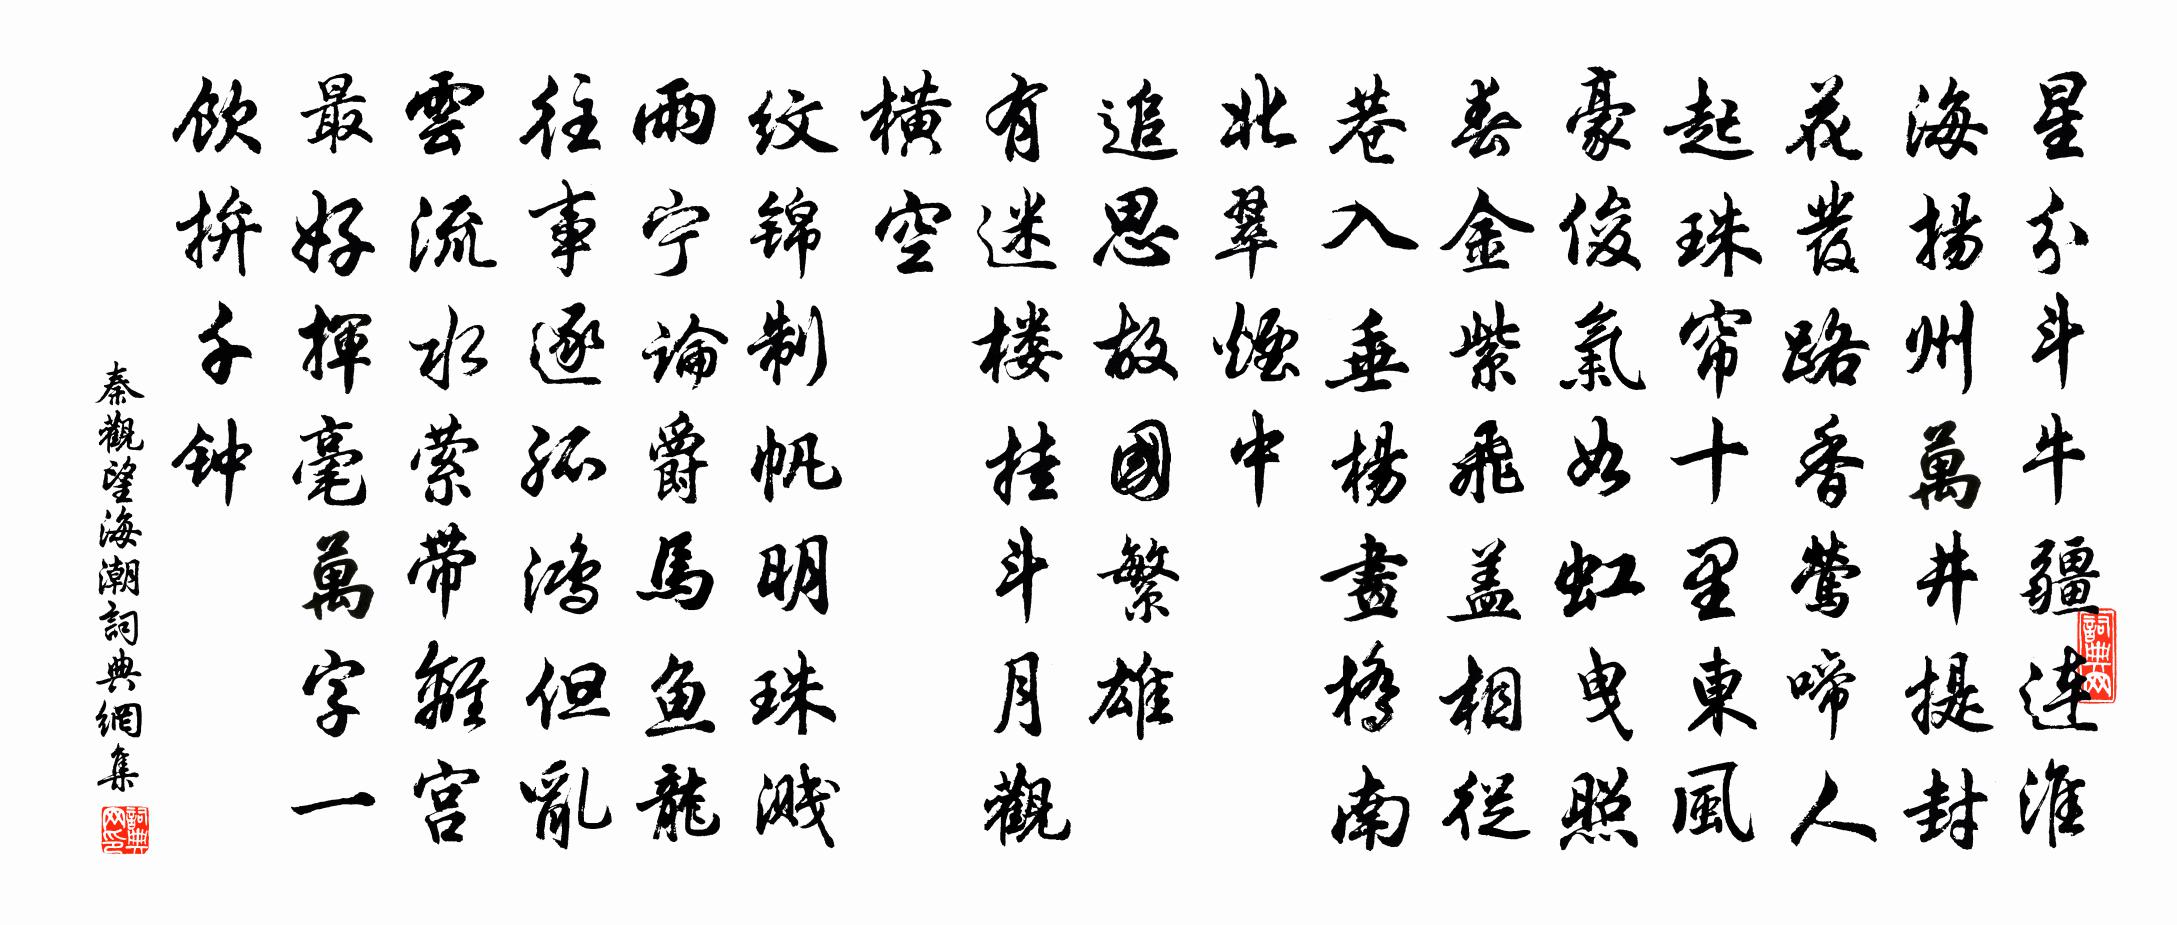 星分斗牛疆連淮
海揚州萬井提封
花發路香鶯啼人
起珠帘十里東風
豪俊氣如虹曳照
春金紫飛盖相從
巷入垂楊畫橋南
北翠煙中
追思故國繁雄
有迷楼挂斗月觀
橫空
纹锦制帆明珠溅
雨宁論爵馬鱼龍
往事逐孤鴻但亂
雲流水萦带離宫
最好揮毫萬字一
飲拚千钟
秦觀望海潮詞典網集
詞典网
詞典网印